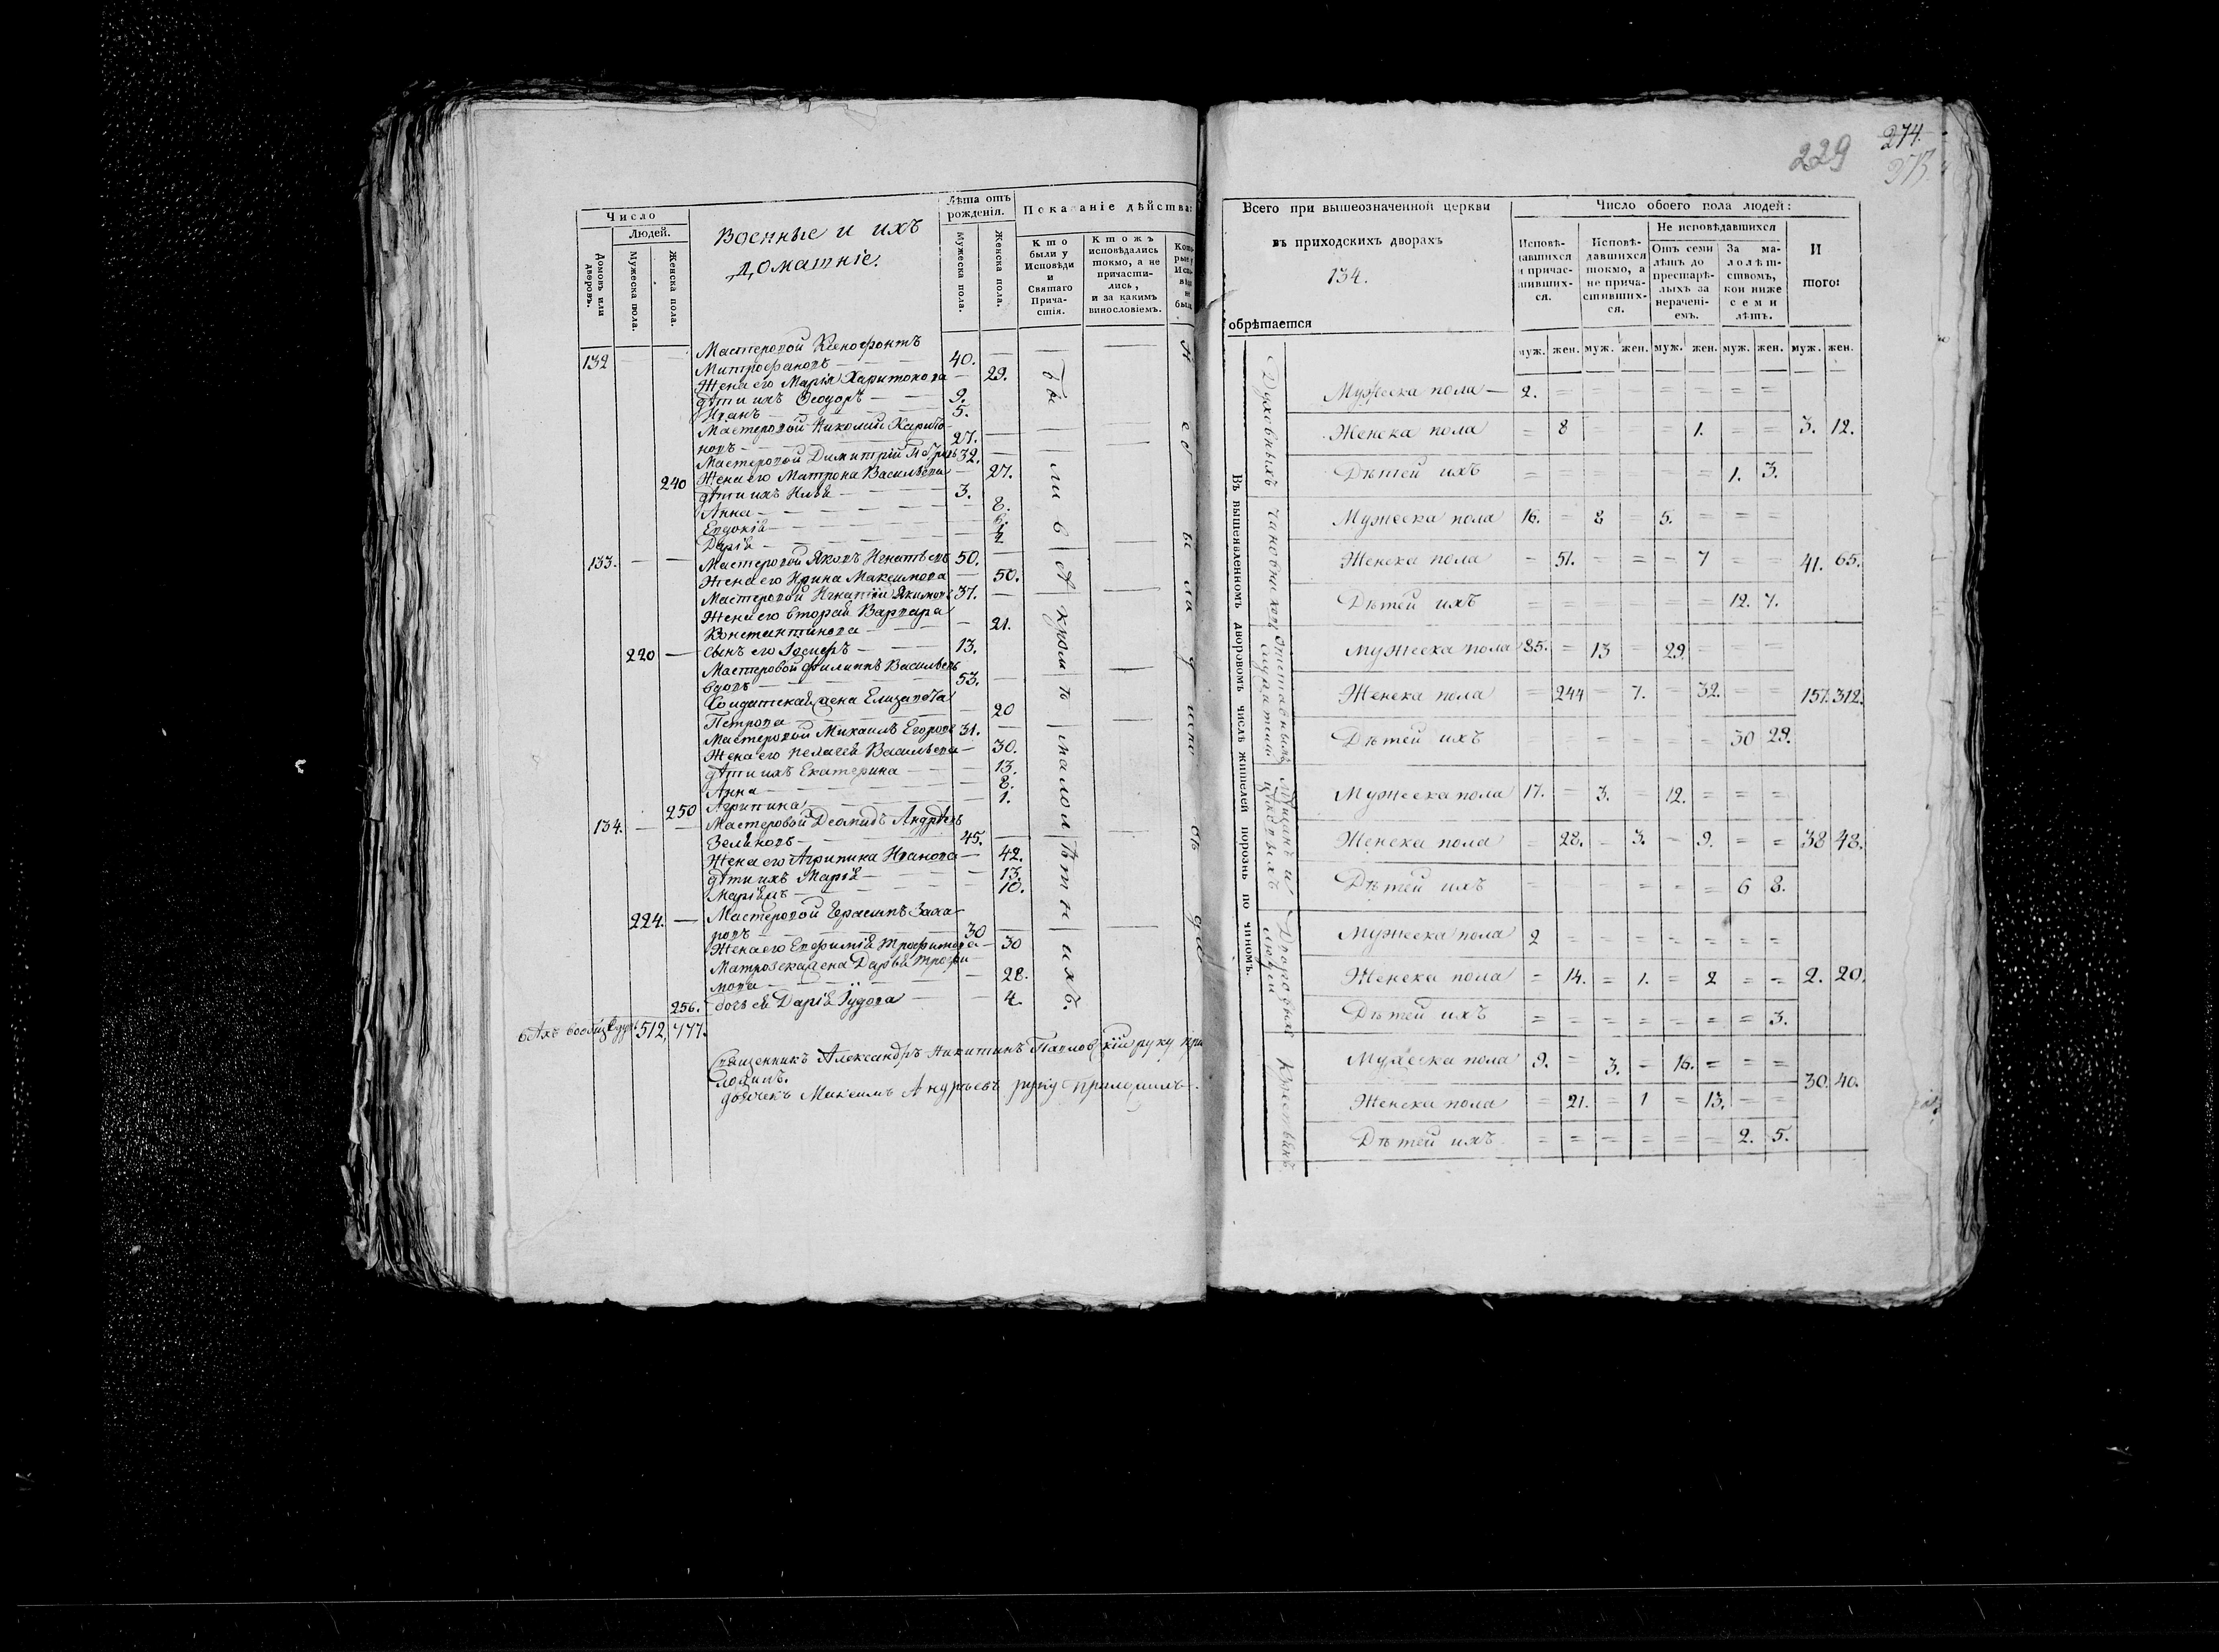 Число
Людей.
Домовъ или дворовъ.
Мужеска пола.
Женска пола.
Военные и ихъ
домашніе.
Лѣта отъ рожденія.
Мужеска пола.
Женска пола.
Показаніе дѣйства:
Кто были у Исповѣди и Святаго Прича-стія.
Ктожъ исповѣдались токмо, а не причасти-лись, и за какимъ винословіемъ.
132 — — Мастеровой Ксенофонтъ
Митрофановъ — 40. —
Жена его Марія Харитонова — 29.
дѣти ихъ Ѳеодоръ — — 9.
Иванъ — — 5.
Мастеровой Николай Харито-
новъ — 27. —
Мастеровой Димитрій 32. —
240 Жена его Матрона Васильева — 27.
дѣти ихъ — — 3.
Анна — — — 8.
Евдокія — — — 6.
Дарія — — —
133. — — Мастеровой Яковъ Игнатьевъ 50. —
Жена его Ирина Максимова — 50.
Мастеровой Игнатій Якимовъ 37. —
Жена его вторая Варвара
Константинова — — 21.
220 — сынъ его Іосифъ — — 13.
Мастеровой Филиппъ Васильевъ
вдовъ — — 53. —
Солдатская жена Елизавета
Петрова — — 20
Мастеровой Михаилъ Егоровъ 31. —
Жена его Пелагея Васильева — 30.
дѣти ихъ Екатерина — — 13.
Анна — — — 8.
250 Агрипина — — 1.
134. — — Мастеровой Андрѣевъ
45. —
Жена его Агрипина Иванова — 42.
дѣти ихъ Марія — — 13.
10.
224. — Мастеровой Герасимъ Заха-
ровъ — 30 —
Жена его Евфимія Трофимова — 30
Матроская жена Дарья Трофи-
мова — — 28.
256. дочь ея Дарія — — 4.
512, 777.
Были всѣ кромѣ малолѣтнихъ.
Священникъ Александръ Никитинъ Павловскій руку при
ложилъ.
дьячекъ Андреевъ руку приложилъ.
229
274.
Всего при вышеозначенной церкви
въ приходскихъ дворахъ
134.
обрѣтается
Число обоего пола людей:
Исповѣ-давшихся и причас-тивших-ся.
Исповѣ-давшихся токмо, а не прича-стивших-ся.
Не исповѣдавшихся
Отъ семи лѣтъ до престарѣ-лыхъ за нерачені-емъ.
За ма-лолѣт-ствомъ, кои ниже семи лѣтъ.
И того:
муж. жен. муж. жен. муж. жен. муж. жен. муж. жен.
Въ вышеявленномъ дворовомъ числѣ жителей порознь по чиномъ.
Духовныхъ
Мужеска пола — 2. = = — — = = =
Женска пола = 8 = = — 1. = = 3. 12.
Дѣтей ихъ = = = = = = 1. 3.
Мужеска пола 16. = 8 = 5. = = =
Женска пола — 51. — = — 7 — — 41. 65.
Дѣтей ихъ = = — — — = 12. 7.
Мужеска пола 85. = 13 = 29. — — —
Женска пола = 244 — 7. — 32. — — 157. 312.
Дѣтей ихъ = = — — — — 30 29.
Мужеска пола 17. — 3. — 12. = = =
Женска пола = 28. — 3. — 9. = = 38 48.
Дѣтей ихъ = — — = = = 6 8.
Дворовыхъ людей
Мужеска пола 2 = = = = = = =
Женска пола = 14. = 1. = 2 = = 2. 20.
Дѣтей ихъ = = = = = = = 3.
Крестьянъ
Мужеска пола 9. = 3. = 16. = = =
30. 40.
Женска пола = 21. = 1 = 13. = =
Дѣтей ихъ = = = = = = 2. 5.